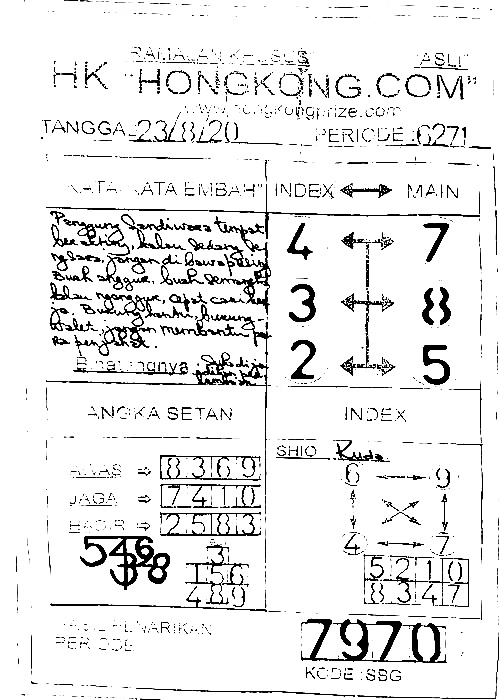 RAMALAN KHUSUS "ASLI"
HK "HONGKONG.COM"
www.hongkongprize.com
TANGGAL 23/8/20 PERIODE : 6271
"KATA-KATA EMBAH" INDEX ↔ MAIN
Panggung Sandiwara tempat
berakting, kalau sedang
jangan di bawa
Buah anggur, buah
kalau nganggur, cari
ja. Burung hantu, burung
walet, jangan membantu pa
ra penjahat.
Binatangnya :
4 7
3 8
2 5
ANGKA SETAN
AWAS ⇒ 8369
JAGA ⇒ 7410
HADIR ⇒ 2583
546
328
3
156
489
INDEX
SHIO Kuda
6 9
4 7
5210
8347
PENARIKAN
PERIODE
7970
KODE : SBG